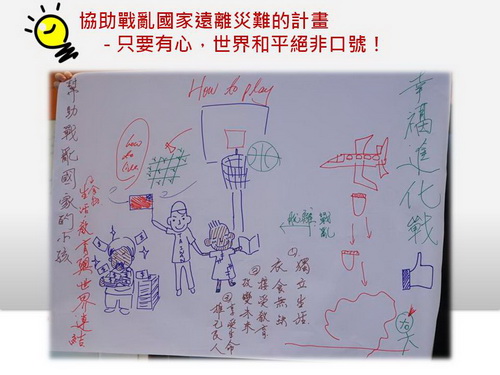 協助戰亂國家遠離災難的計畫
- 只要有心，世界和平絕非口號！
How to play
幸福進化戰
幫助戰亂國家的小孩
生活教育與世界連結
how to live
脫離戰亂
① 獨立生活
衣食無缺
② 接受教育
改變未來
③ 享受生命
雄心民人